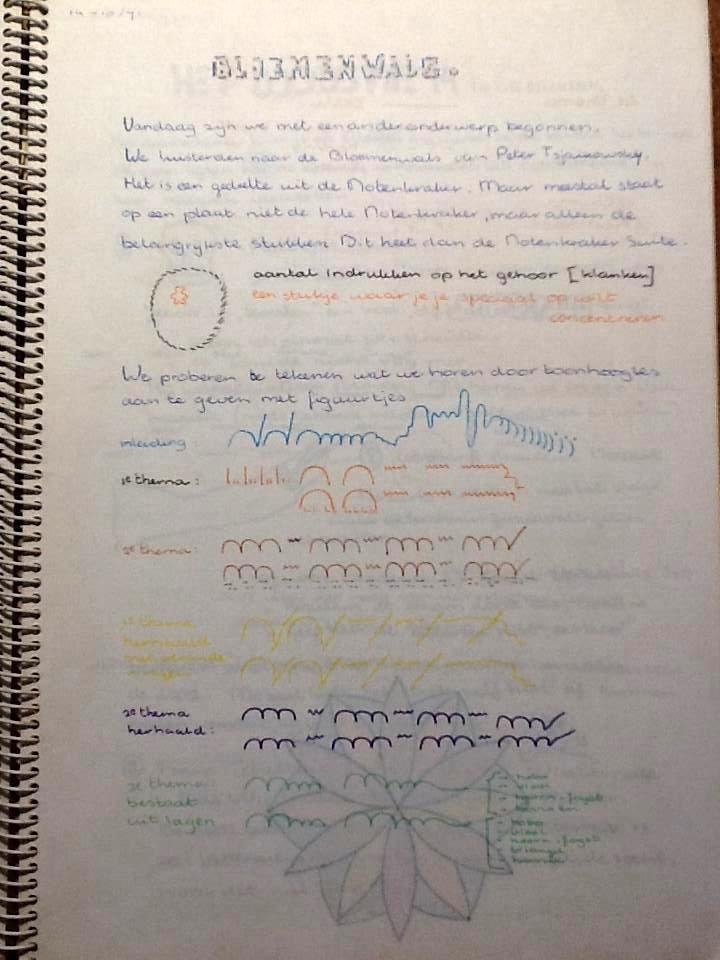 BLOEMENWALS.
Vandaag zijn we met een ander onderwerp begonnen.
We luisterden naar de Bloemenwals van Peter Tsjaikowsky.
Het is een gedeelte uit de Notenkraker. Maar meestal staat
op een plaat niet de hele Notenkraker, maar alleen de
belangrijkste stukken. Dit heet dan de Notenkraker Suite.
aantal indrukken op het gehoor [klanken]
een stukje waar je je speciaal op wilt
concentreren
We proberen te tekenen wat we horen door toonhoogtes
aan te geven met figuurtjes
inleiding:
1e thema:
2e thema:
1e thema
herhaald
2e thema
herhaald:
3e thema
bestaat
uit lagen